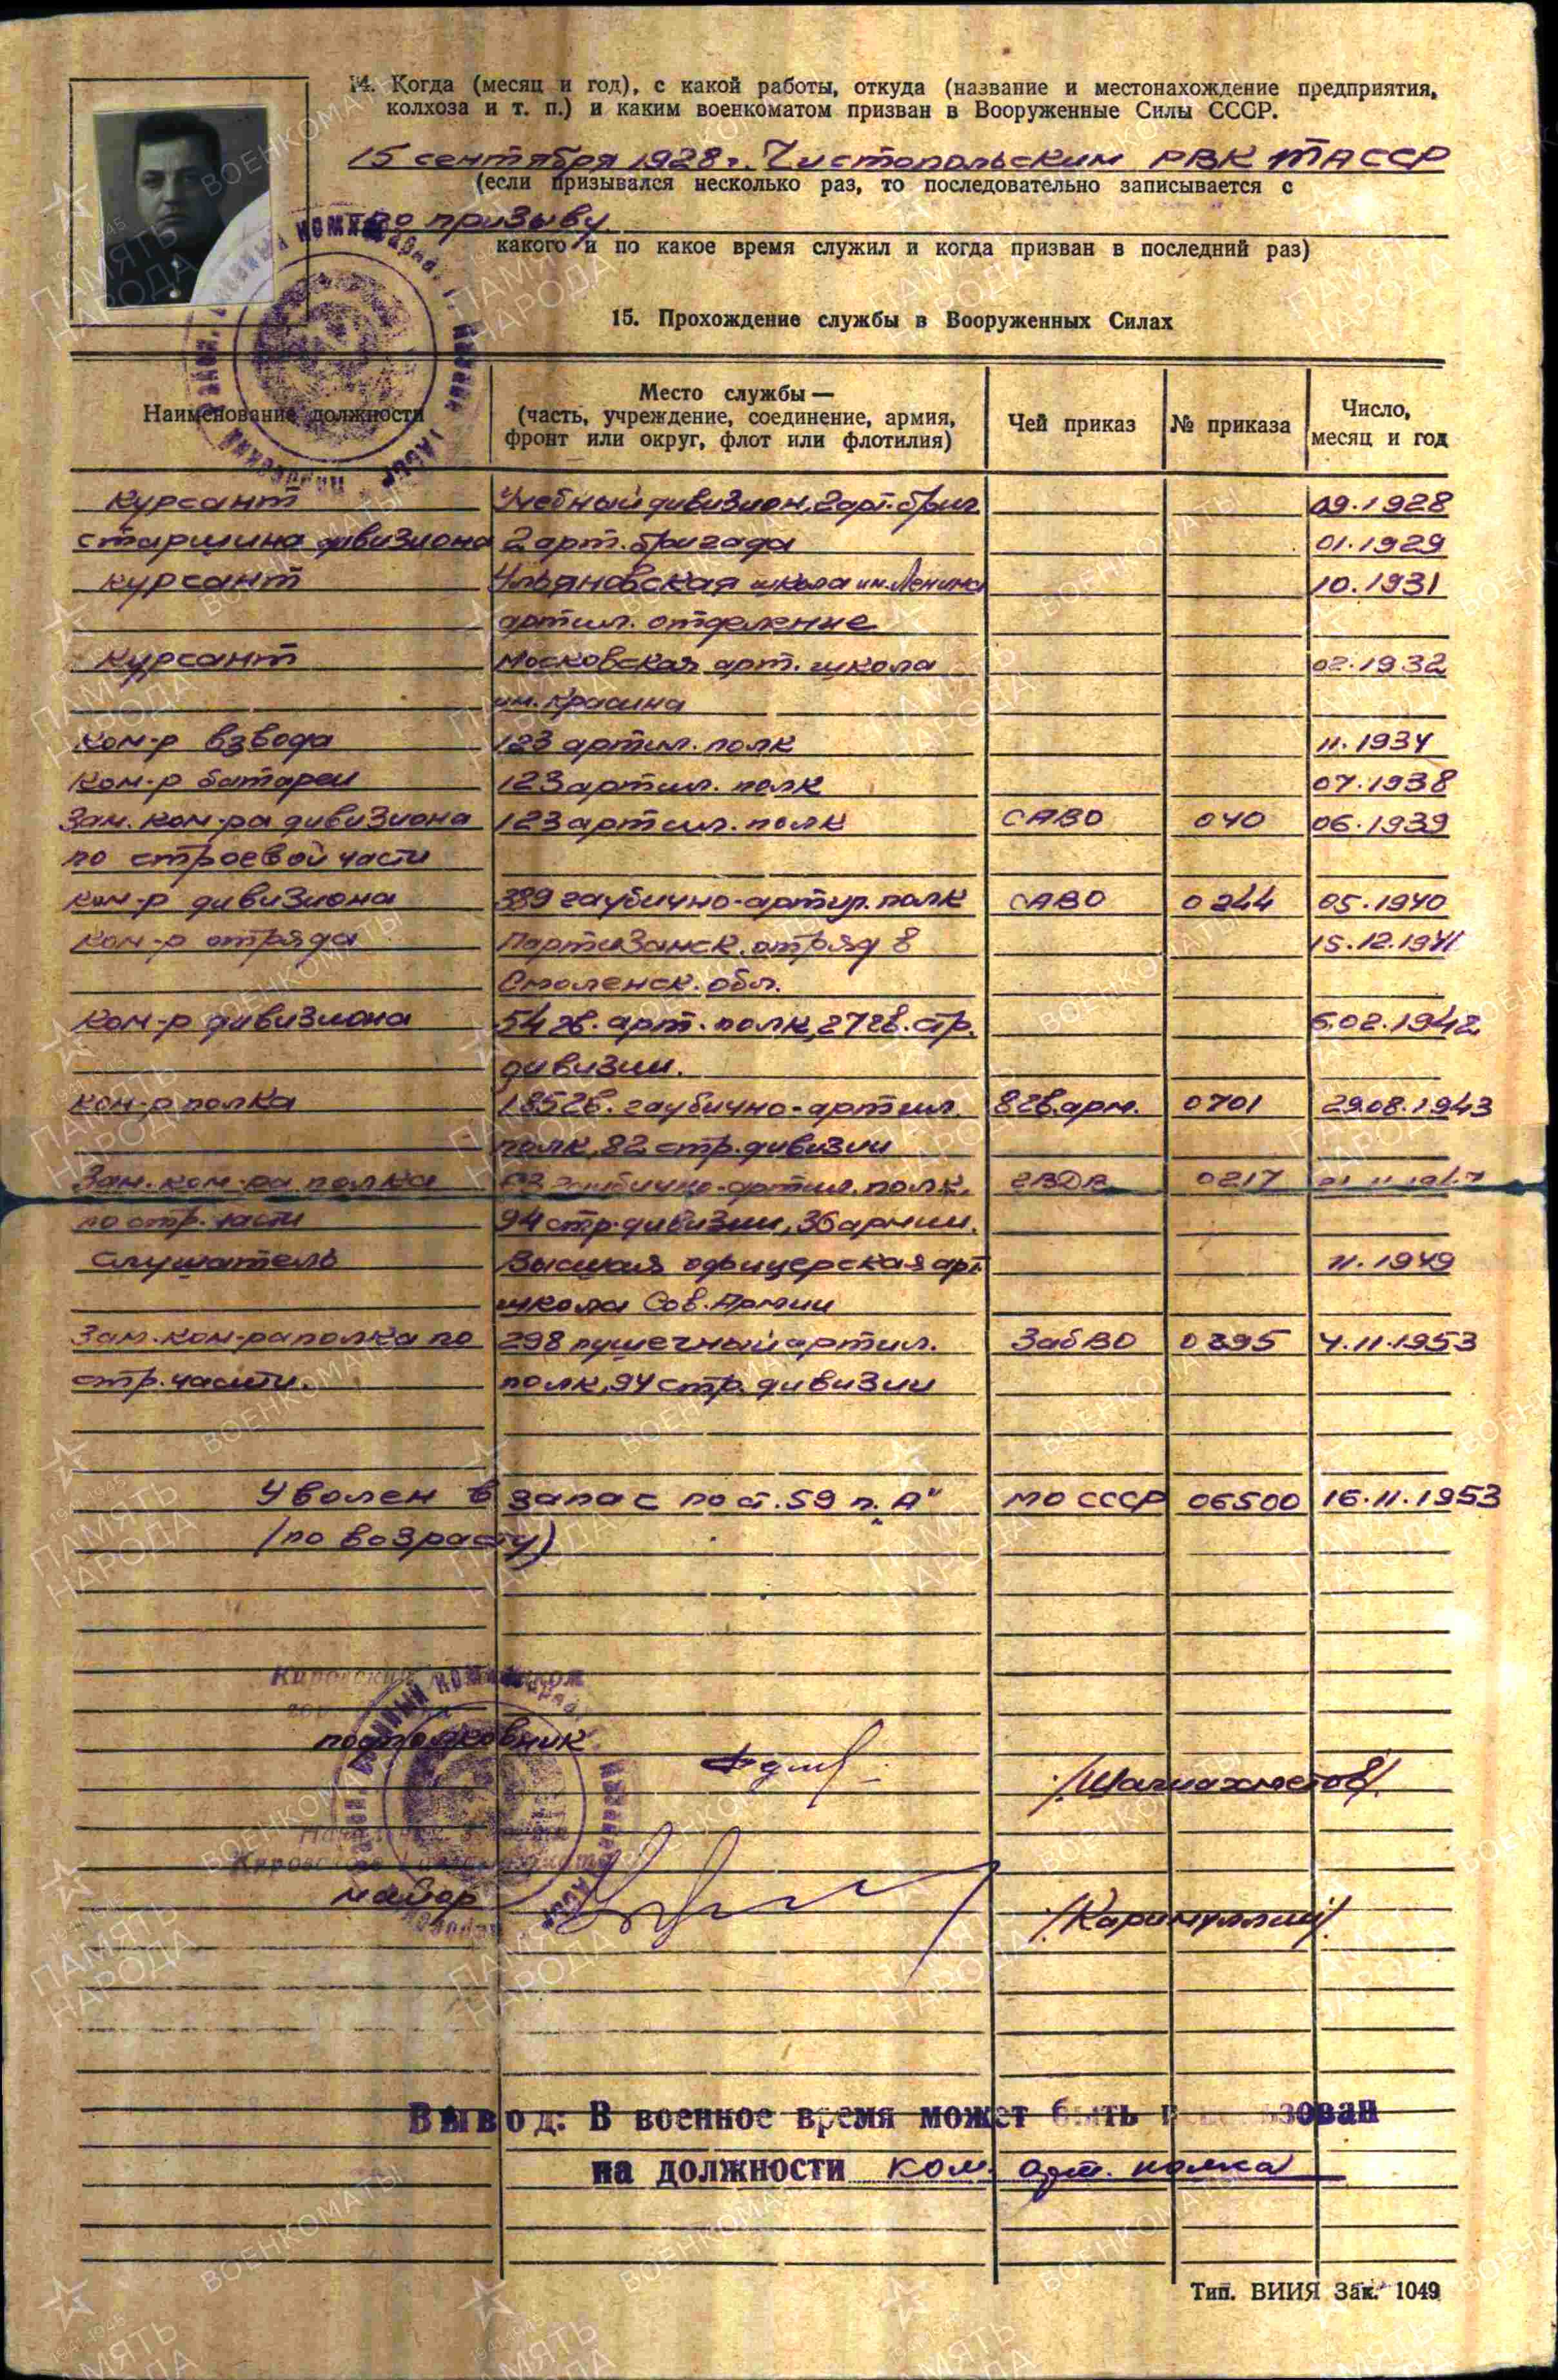 14. Когда (месяц и год), с какой работы, откуда (название и местонахождение предприятия,
колхоза и т. п.) и каким военкоматом призван в Вооруженные Силы СССР.
15 сентября 1928 г. Чистопольским РВК ТАССР
(если призывался несколько раз, то последовательно записывается с
по призыву.
какого и по какое время служил и когда призван в последний раз)
15. Прохождение службы в Вооруженных Силах
Наименование должности Место службы — (часть, учреждение, соединение, армия, фронт или округ, флот или флотилия) Чей приказ № приказа Число, месяц и год
курсант Учебный дивизион, 2 арт. бриг 09.1928
старшина дивизиона 2 арт. бригада 01.1929
курсант Ульяновская школа им. Ленина 10.1931
артил. отделение
курсант Московская арт. школа 02.1932
им. Красина
Ком-р взвода 123 артил. полк 11.1934
Ком-р батареи 123 артил. полк 07.1938
Зам. ком-ра дивизиона 123 артил. полк САВО 040 06.1939
по строевой части
ком-р дивизиона 389 гаубично-артил. полк САВО 0244 05.1940
ком-р отряда Партизанск. отряд в 15.12.1941
Смоленск. обл.
ком-р дивизиона 54 гв. арт. полк, 27 гв. стр. 6.02.1942
дивизии.
ком-р полка 185 гв. гаубично-артил. 8 гв. арм. 0701 29.08.1943
полк, 82 стр. дивизии
Зам. ком-ра полка гаубично-артил. полк, 0217
по стр. части 94 стр. дивизии, 36 армии.
слушатель Высшая офицерская арт 11.1949
школа Сов. Армии
Зам. ком-ра полка по 298 пушечный артил. ЗабВО 0295 4.11.1953
стр. части. полк, 94 стр. дивизии
Уволен в запас по ст. 59 п. "А" МО СССР 06500 16.11.1953
(по возрасту)
подполковник /Шагиахметов/
майор /Каримуллин/
Вывод: В военное время может быть использован
на должности ком. арт. полка
Тип. ВИИЯ Зак. 1049
ПАМЯТЬ НАРОДА
1941-1945
ВОЕНКОМАТЫ